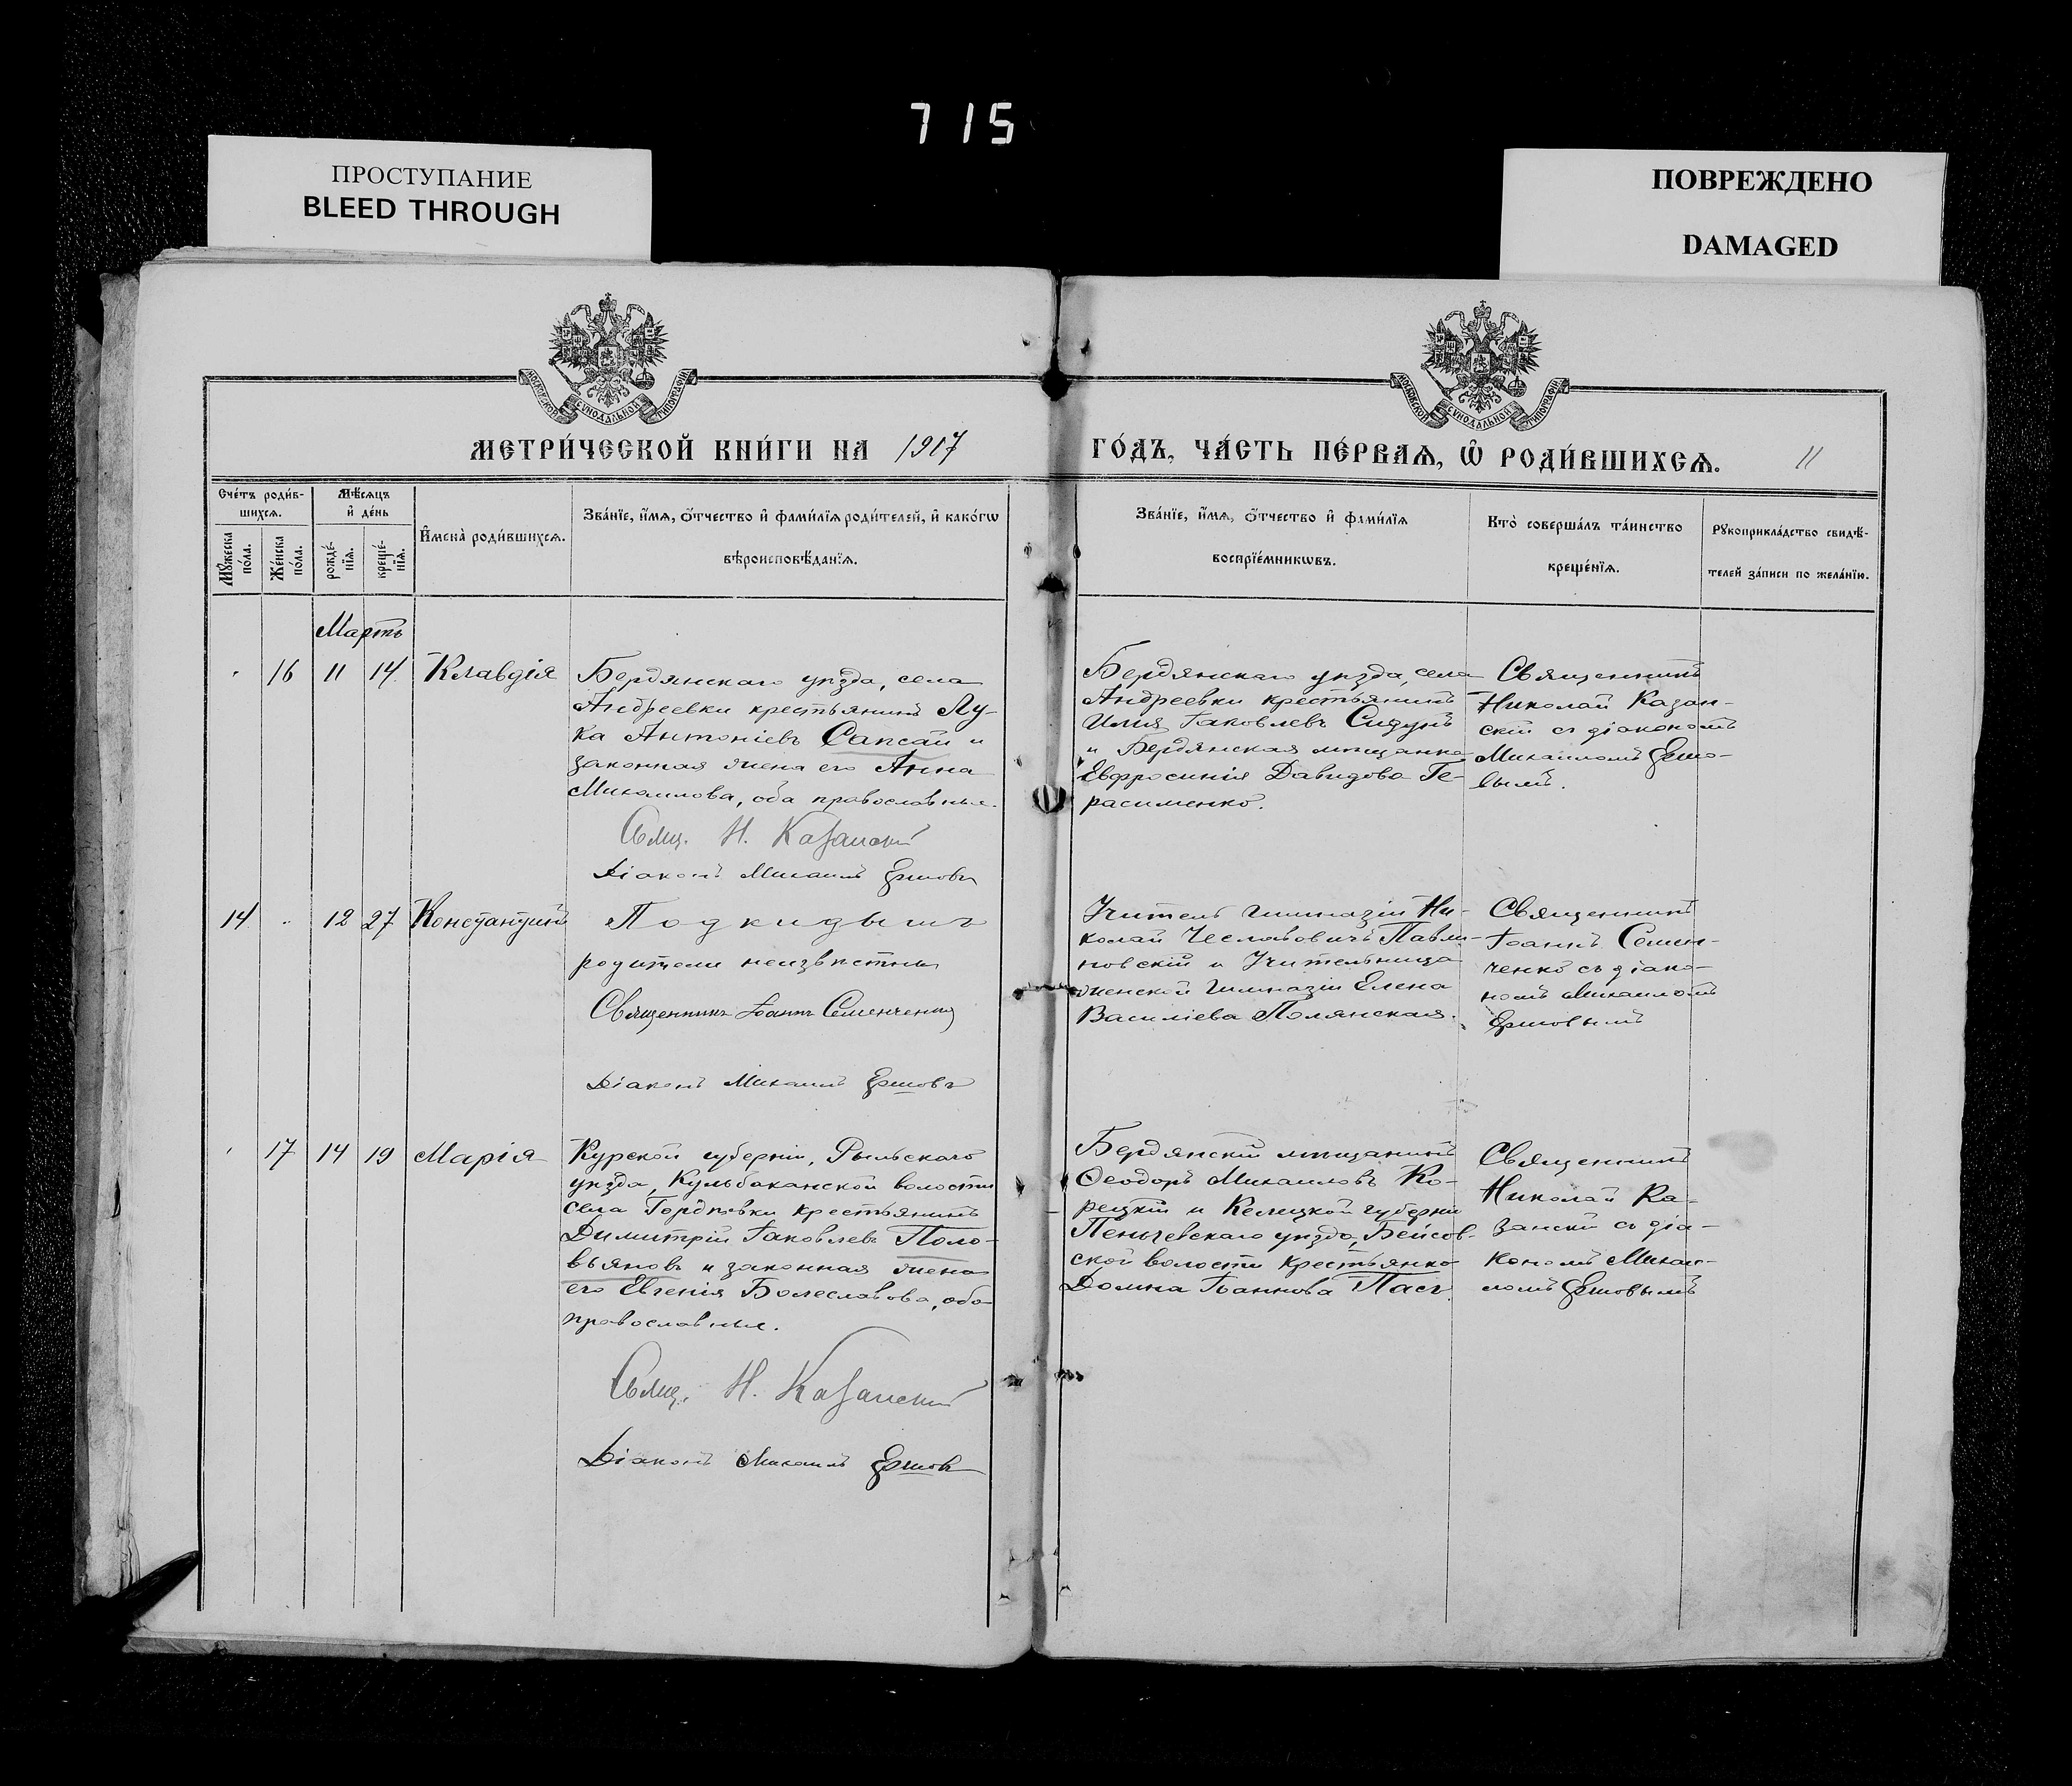 715
ПРОСТУПАНИЕ
BLEED THROUGH
ПОВРЕЖДЕНО
DAMAGED
МОСКОВСКОЙ СѴНОДАЛЬНОЙ ТИПОГРАФІИ
МОСКОВСКОЙ СѴНОДАЛЬНОЙ ТИПОГРАФІИ
МЕТРИ́ЧЕСКОЙ КНИ́ГИ НА 1917
ГО́ДЪ, ЧА́СТЬ ПЕ́РВАѦ, Ѡ҆ РОДИ́ВШИХСѦ. 11
Сче́тъ роди́в-
шихсѧ.
Мꙋ́жеска по́ла.
Же́нска по́ла.
Мѣ́сѧцъ
и҆ де́нь
рожде́-
нїѧ.
креще́-
нїѧ.
И҆мена̀ роди́вшихсѧ.
Зва́нїе, и҆́мѧ, ѻ҆́тчество и҆ фами́лїѧ роди́телей, и҆ како́гѡ
вѣроисповѣ́данїѧ.
Зва́нїе, и҆́мѧ, ѻ҆́тчество и҆ фами́лїѧ
воспрїе́мникѡвъ.
Кто̀ соверша́лъ та́инство
креще́нїѧ.
Рꙋкоприкла́дство свидѣ́-
телей за́писи по жела́нїю.
Мартъ
16 11 14 Клавдія
Бердянскаго уѣзда, села
Андреевки крестьянинъ Лу-
ка Антоніевъ Сапсай и
законная жена его Анна
Михаилова, оба православные.
Свящ. Н. Казанскій
Діаконъ Михаилъ Ершовъ
Бердянскаго уѣзда, села
Андреевки крестьянинъ
Илія Іаковлевъ Сидунъ
и Бердянская мѣщанка
Евфросинія Давидова Ге-
расименко.
Священникъ
Николай Казан-
скій съ діакономъ
Михаиломъ Ершо-
вымъ.
14 12 27 Константинъ
Подкидышъ
родители неизвѣстны
Священникъ Іоаннъ Семенченко
Діаконъ Михаилъ Ершовъ
Учитель гимназіи Ни-
колай Чеславовичъ Павли-
новскій и Учительница
женской гимназіи Елена
Василіева Полянская.
Священникъ
Іоаннъ Семен-
ченко съ діако-
номъ Михаиломъ
Ершовымъ
17 14 19 Марія
Курской губерніи, Рыльскаго
уѣзда, Кульбаканской волости
села Гордѣевки крестьянинъ
Димитрій Іаковлевъ Поло-
вьяновъ и законная жена
его Евгенія Болеславова, оба
православные.
Свящ. Н. Казанскій
Діаконъ Михаилъ Ершовъ
Бердянскій мѣщанинъ
Ѳеодоръ Михаиловъ Ко-
рецкій и Келецкой губерніи
уѣзда, Бейсов-
ской волости крестьянка
Домна Іоаннова Пасъ
Священникъ
Николай Ка-
занскій съ діа-
кономъ Михаи-
ломъ Ершовымъ